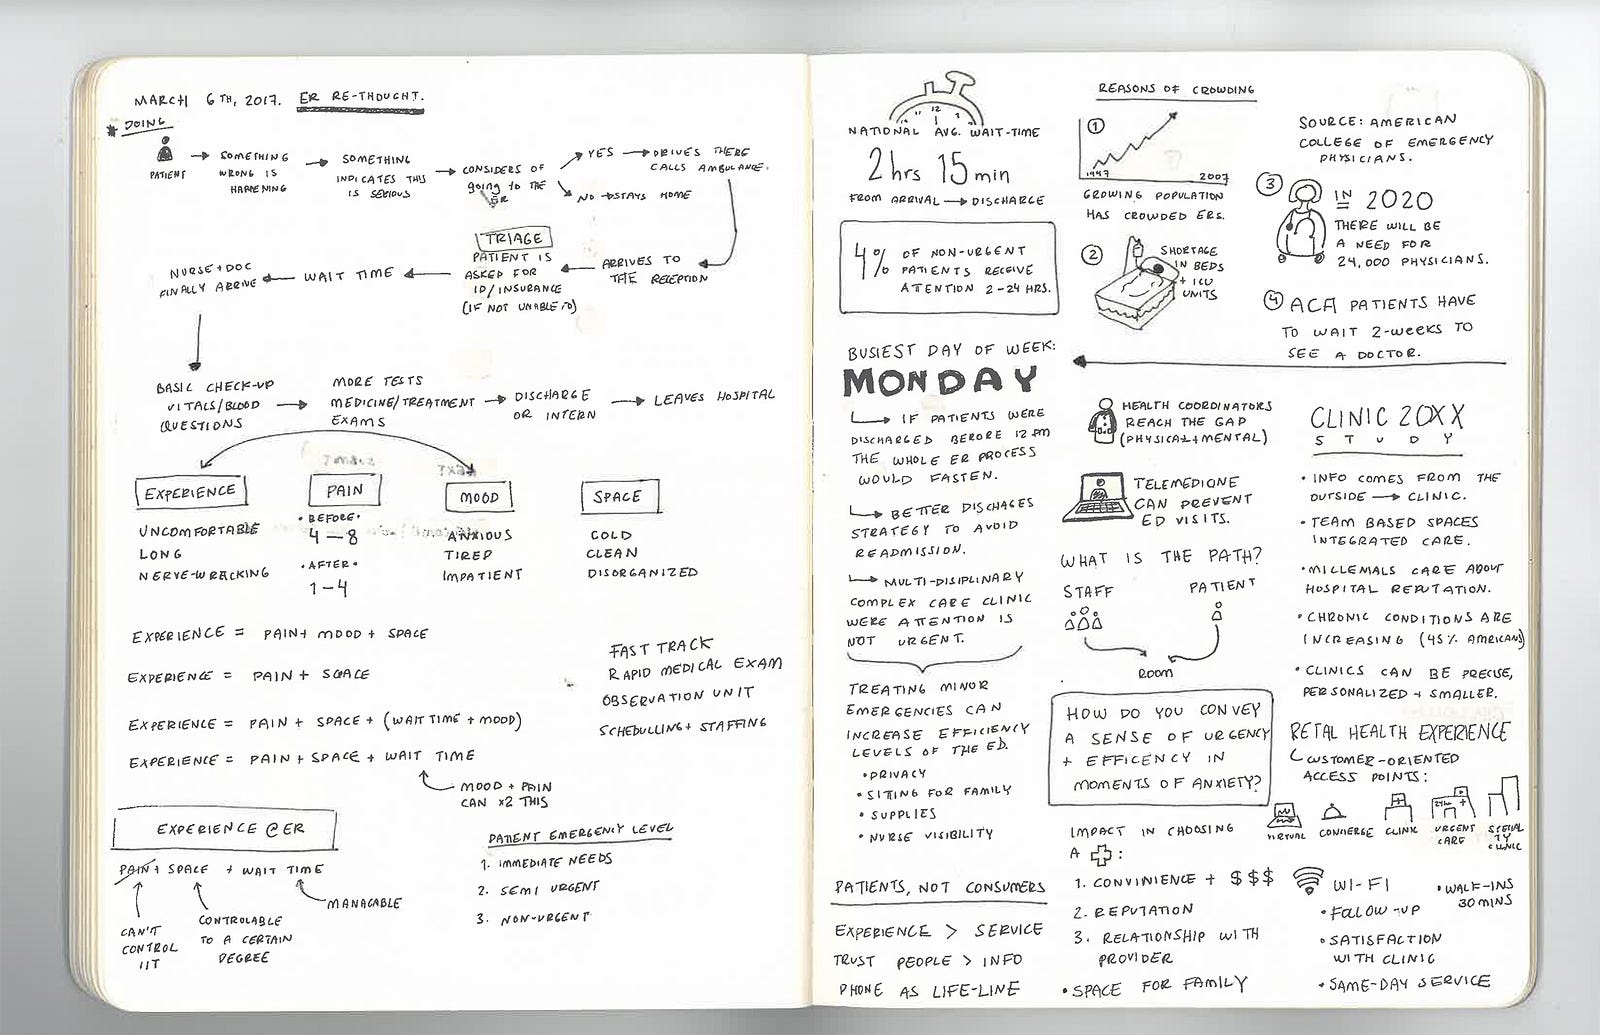 MARCH 6TH, 2017. ER RE-THOUGHT.
* DOING
PATIENT
SOMETHING
WRONG IS
HAPPENING
SOMETHING
INDICATES THIS
IS SERIOUS
CONSIDERS OF
going to the
ER
YES → DRIVES THERE
CALLS AMBULANCE.
NO → STAYS HOME
ARRIVES TO
THE RECEPTION
TRIAGE
PATIENT IS
ASKED FOR
ID/INSURANCE
(IF NOT UNABLE TO)
WAIT TIME
NURSE + DOC
FINALLY ARRIVE
BASIC CHECK-UP
VITALS/BLOOD
QUESTIONS
MORE TESTS
MEDICINE/TREATMENT
EXAMS
DISCHARGE
OR INTERN
LEAVES HOSPITAL
EXPERIENCE
UNCOMFORTABLE
LONG
NERVE-WRACKING
PAIN
• BEFORE •
4 – 8
• AFTER •
1 – 4
MOOD
ANXIOUS
TIRED
IMPATIENT
SPACE
COLD
CLEAN
DISORGANIZED
EXPERIENCE = PAIN + MOOD + SPACE
EXPERIENCE = PAIN + SPACE
EXPERIENCE = PAIN + SPACE + (WAIT TIME + MOOD)
EXPERIENCE = PAIN + SPACE + WAIT TIME
MOOD + PAIN
CAN X2 THIS
FAST TRACK
RAPID MEDICAL EXAM
OBSERVATION UNIT
SCHEDULLING + STAFFING
EXPERIENCE @ ER
PAIN + SPACE + WAIT TIME
CAN'T
CONTROL
IIT
CONTROLABLE
TO A CERTAIN
DEGREE
MANAGABLE
PATIENT EMERGENCY LEVEL
1. IMMEDIATE NEEDS
2. SEMI URGENT
3. NON-URGENT
12
NATIONAL AVG. WAIT-TIME
2 hrs 15 min
FROM ARRIVAL → DISCHARGE
4% OF NON-URGENT
PATIENTS RECEIVE
ATENTION 2-24 HRS.
BUSIEST DAY OF WEEK:
MONDAY
IF PATIENTS WERE
DISCHARGED BEFORE 12 PM
THE WHOLE ER PROCESS
WOULD FASTEN.
BETTER DISCHAGES
STRATEGY TO AVOID
READMISSION.
MULTI-DISIPLINARY
COMPLEX CARE CLINIC
WERE ATTENTION IS
NOT URGENT.
TREATING MINOR
EMERGENCIES CAN
INCREASE EFFICIENCY
LEVELS OF THE ED.
• PRIVACY
• SITING FOR FAMILY
• SUPPLIES
• NURSE VISIBILITY
PATIENTS, NOT CONSUMERS
EXPERIENCE > SERVICE
TRUST PEOPLE > INFO
PHONE AS LIFE-LINE
REASONS OF CROWDING
1
1997 2007
GROWING POPULATION
HAS CROWDED ERs.
2
SHORTAGE
IN BEDS
+ ICU
UNITS
SOURCE: AMERICAN
COLLEGE OF EMERGENCY
PHYSICIANS.
3 IN 2020
THERE WILL BE
A NEED FOR
24,000 PHYSICIANS.
4 ACA PATIENTS HAVE
TO WAIT 2-WEEKS TO
SEE A DOCTOR.
HEALTH COORDINATORS
REACH THE GAP
(PHYSICAL + MENTAL)
TELEMEDIONE
CAN PREVENT
ED VISITS.
WHAT IS THE PATH?
STAFF PATIENT
ROOM
HOW DO YOU CONVEY
A SENSE OF URGENCY
+ EFFICENCY IN
MOMENTS OF ANXIETY?
IMPACT IN CHOOSING
A :
1. CONVINIENCE + $$$
2. REPUTATION
3. RELATIONSHIP WITH
PROVIDER
• SPACE FOR FAMILY
CLINIC 20XX
STUDY
• INFO COMES FROM THE
OUTSIDE → CLINIC.
• TEAM BASED SPACES
INTEGRATED CARE.
• MILLEMALS CARE ABOUT
HOSPITAL REPUTATION.
• CHRONIC CONDITIONS ARE
INCREASING (45% AMERICANS)
• CLINICS CAN BE PRECISE,
PERSONALIZED + SMALLER.
RETAL HEALTH EXPERIENCE
CUSTOMER-ORIENTED
ACCESS POINTS:
VIRTUAL
CONCIERGE
CLINIC
URGENT
CARE
SPECIAL
TY
CLINIC
WI-FI
• WALK-INS
30 MINS
• FOLLOW-UP
• SATISFACTION
WITH CLINIC
• SAME-DAY SERVICE